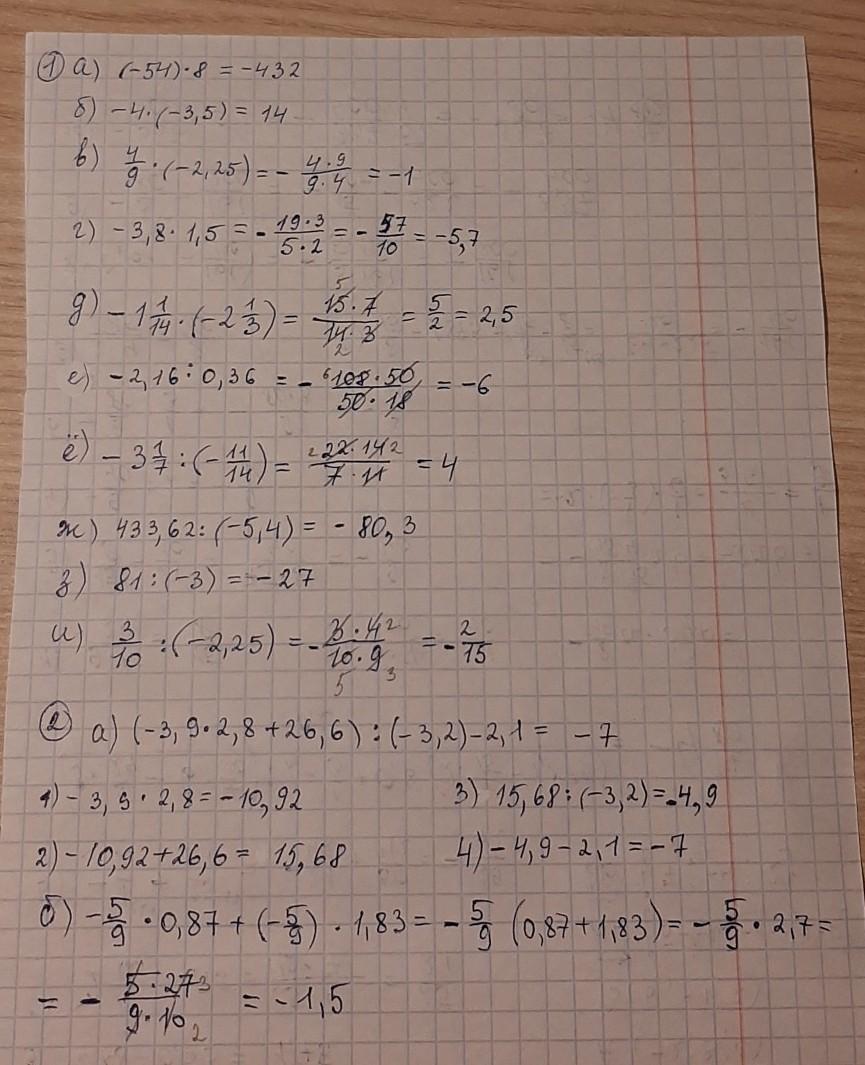 ① а) (-54)·8 = -432
б) -4·(-3,5) = 14
в) 4/9·(-2,25) = - 4·9/9·4 = -1
г) -3,8·1,5 = - 19·3/5·2 = - 57/10 = -5,7
д) -1 1/14·(-2 1/3) = 15·7/14·3 = 5/2 = 2,5
5
2
е) -2,16 : 0,36 = - 108·50/50·18 = -6
6
ё) -3 1/7 : (-11/14) = 22·14/7·11 = 4
2 2
ж) 433,62 : (-5,4) = -80,3
з) 81 : (-3) = -27
и) 3/10 : (-2,25) = - 3·4/10·9 = - 2/15
2
5 3
② а) (-3,9·2,8+26,6) : (-3,2)-2,1 = -7
1) -3,9·2,8 = -10,92
3) 15,68 : (-3,2) = -4,9
2) -10,92+26,6 = 15,68
4) -4,9-2,1 = -7
б) -5/9·0,87+(-5/9)·1,83 = -5/9 (0,87+1,83) = -5/9·2,7 =
= - 5·27/9·10 = -1,5
1 3
2